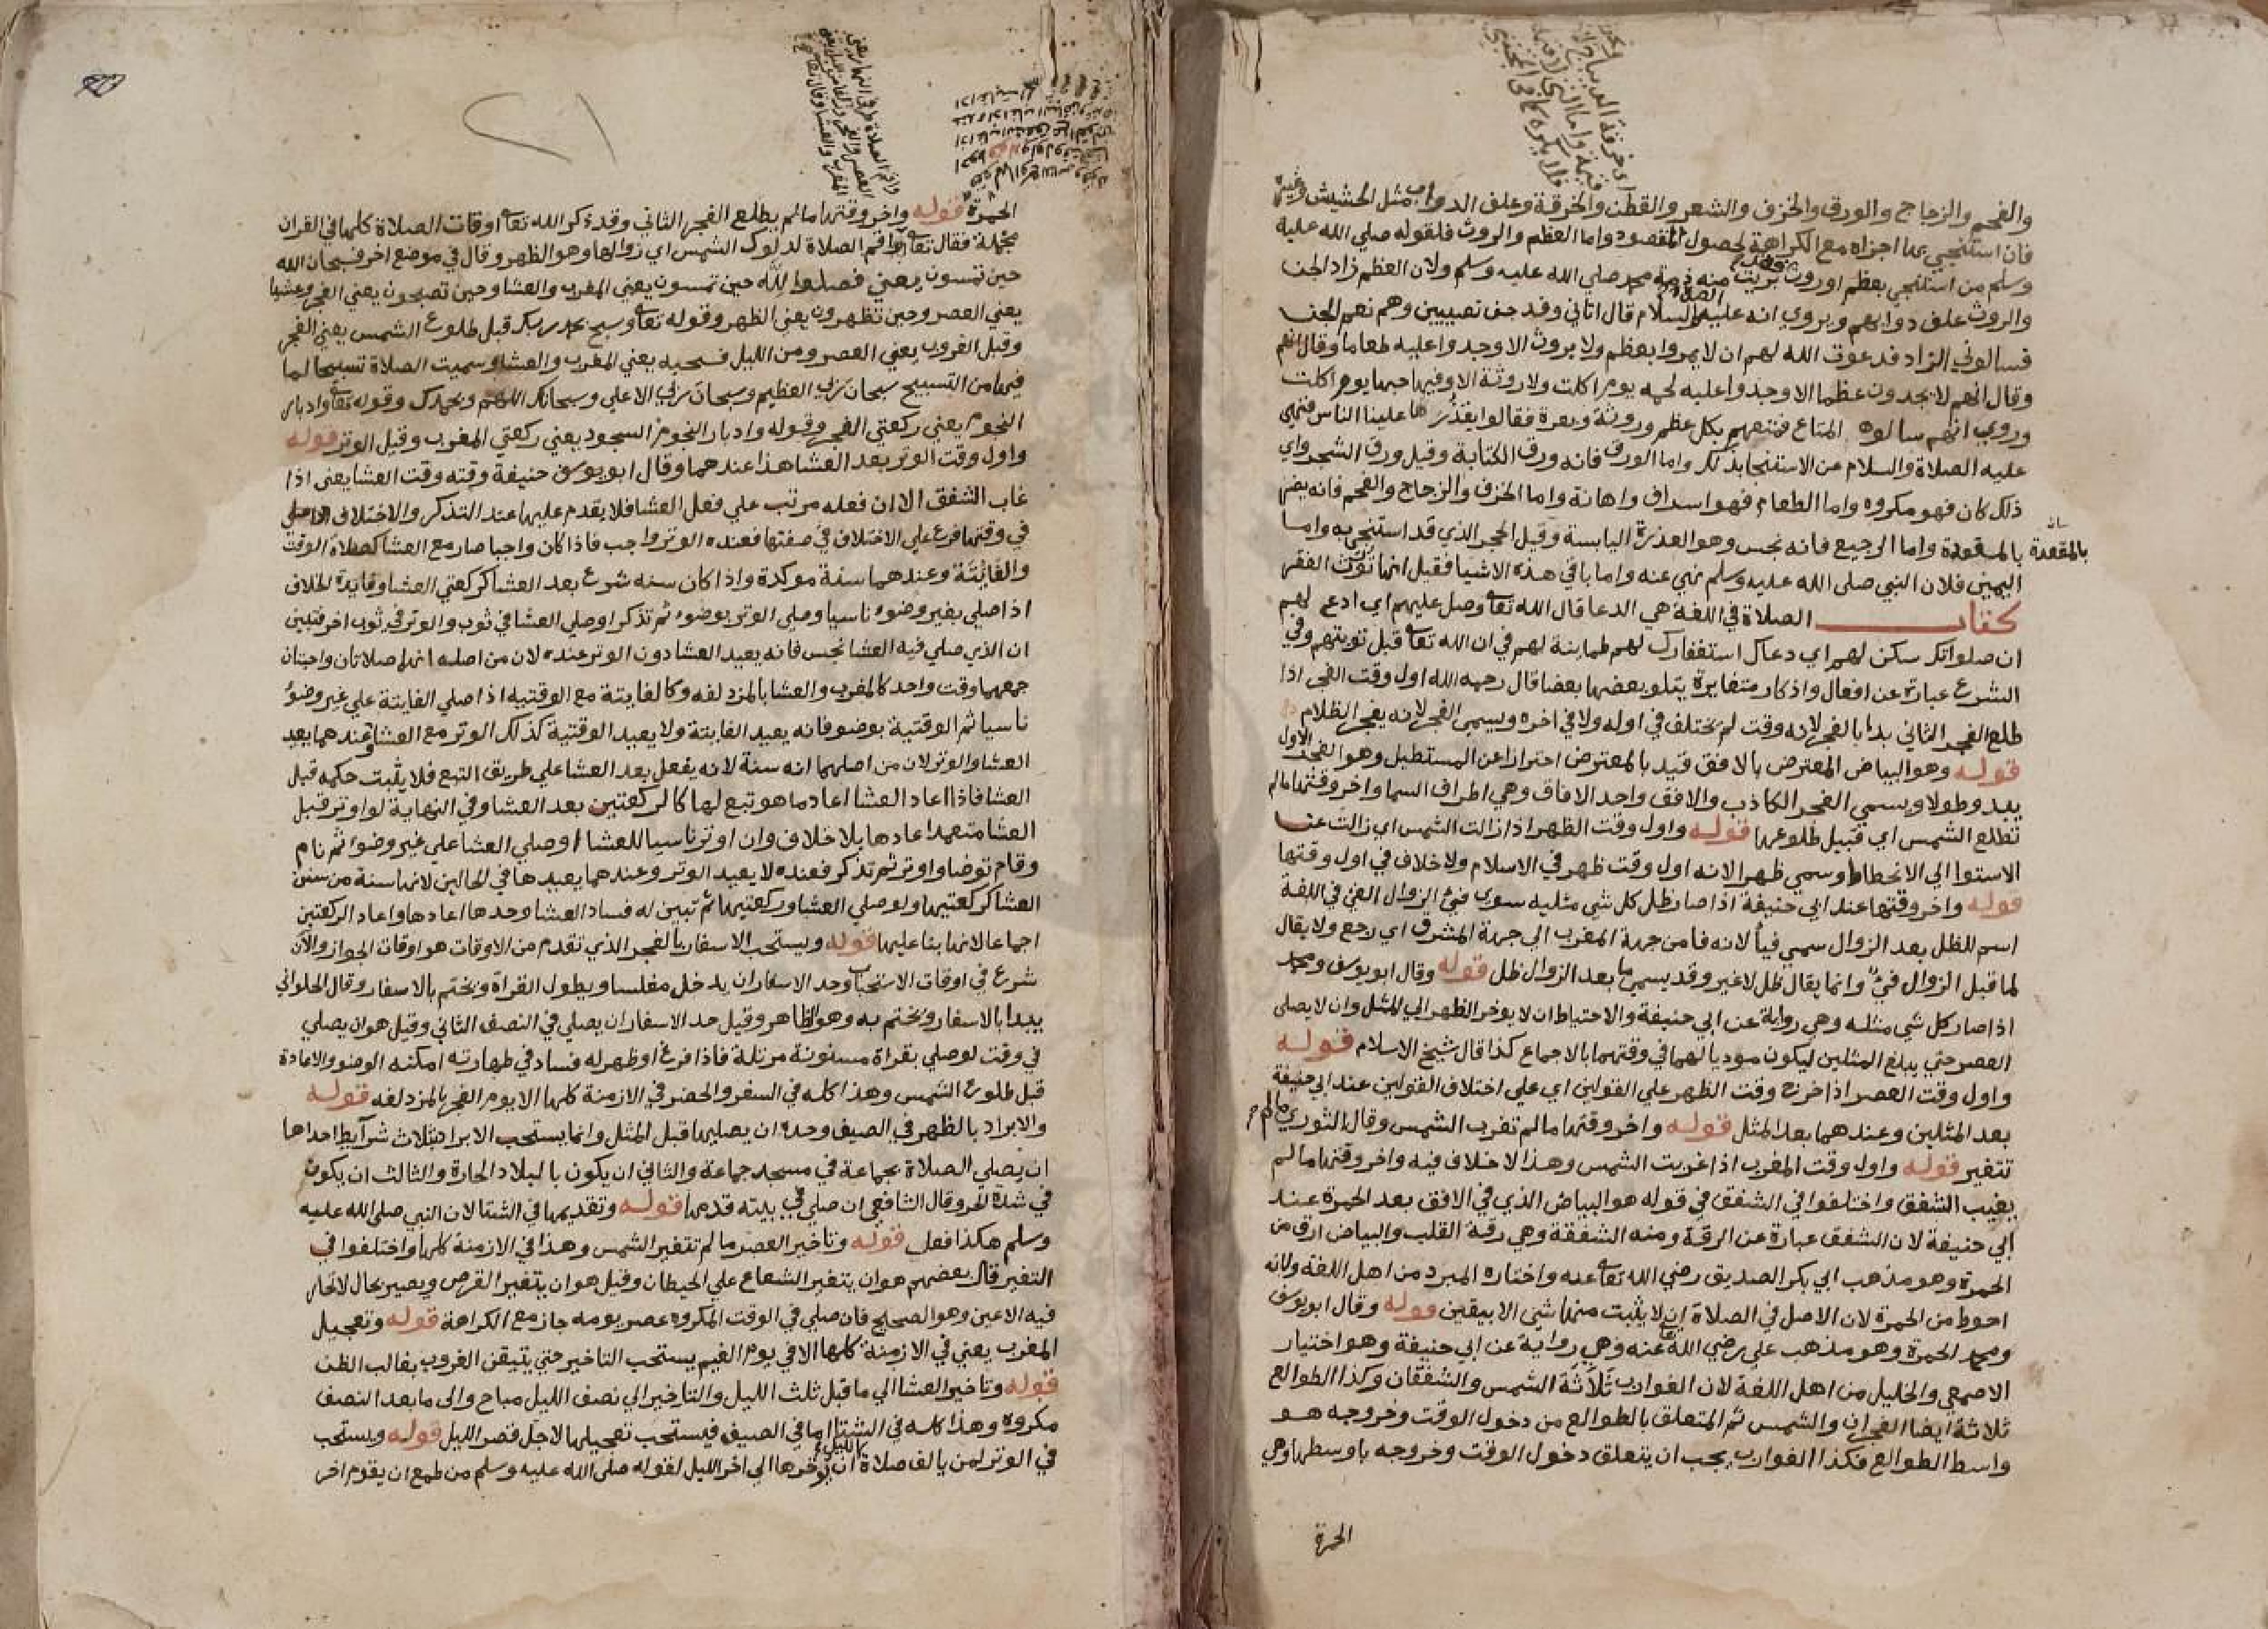 والفحم والزجاج والورق والخزف والشعر والقطن والخرقة وعلف الدواب مثل الحشيش وغيره
فان استنجي بها اجزاه مع الكراهة لحصول المقصود واما العظم والروث فلقوله صلي الله عليه
وسلم من استنجي بعظم او روث فقد بريت منه ذمة محمد صلي الله عليه وسلم ولان العظم زاد الجن
والروث علف دوابهم ويروي انه عليه الصلاة والسلام قال اتاني وفد جن نصيبين وهم نعم الجن
فسالوني الزاد فدعوت الله لهم ان لا يمروا بعظم ولا بروث الا وجدوا عليه طعاما وقال انهم
وقال انهم لا يجدون عظما الا وجدوا عليه لحمه يوم اكلت ولا روثة الا وفيها حبها يوم اكلت
وروي انهم سالوه المتاع فمتعهم بكل عظم وروثة وبعرة فقالوا يقذرها علينا الناس فنهي
عليه الصلاة والسلام عن الاستنجا بذلك واما الورق فانه ورق الكتابة وقيل ورق الشجر واي
ذلك كان فهو مكروه واما الطعام فهو اسراف واهانة واما الخزف والزجاج والفحم فانه يضر
بالمقعدة بالمقعدة واما الرجيع فانه نجس وهو العذرة اليابسة وقيل الحجر الذي قد استنجي به واما
اليمين فلان النبي صلى الله عليه وسلم نهي عنه واما باقي هذه الاشيا فقيل انها تورث الفقر
كتاب الصلاة في اللغة هي الدعا قال الله تعا وصل عليهم اي ادع لهم
ان صلواتك سكن لهم اي دعاك استغفارك لهم طمانينة لهم في ان الله تعا قبل توبتهم وفي
الشرع عبارة عن افعال واذكار متغايرة يتلو بعضها بعضا قال رحمه الله اول وقت الفجر اذا
طلع الفجر الثاني بدا بالفجر لانه وقت لم يختلف في اوله ولا في اخره ويسمي الفجر لانه يفجر الظلام
قوله وهو البياض المعترض بالافق قيد بالمعترض احترازا عن المستطيل وهو الفجر الاول
يبدو طولا ويسمي الفجر الكاذب والافق واحد الافاق وهي اطراف السما واخر وقتها مالم
تطلع الشمس اي قبيل طلوعها قوله واول وقت الظهر اذا زالت الشمس اي زالت عن
الاستوا الي الانحطاط وسمي ظهرا لانه اول وقت ظهر في الاسلام ولا خلاف في اول وقتها
قوله واخر وقتها عند ابي حنيفة اذا صار ظل كل شي مثليه سوي فيء الزوال الفيء في اللغة
اسم للظل بعد الزوال سمي فيأ لانه فا من جهة المغرب الي جهة المشرق اي رجع ولا يقال
لما قبل الزوال فيء وانما يقال ظل لا غير وقد يسمي ما بعد الزوال ظل قوله وقال ابو يوسف ومحمد
اذا صار كل شي مثله وهي رواية عن ابي حنيفة والاحتياط ان لا يوخر الظهر الي المثل وان لا يصلي
العصر حتي يبلغ المثلين ليكون موديا لهما في وقتهما بالاجماع كذا قال شيخ الاسلام قوله
واول وقت العصر اذا خرج وقت الظهر علي القولين اي علي اختلاف القولين عند ابي حنيفة
بعد المثلين وعندهما بعد المثل قوله واخر وقتها مالم تغرب الشمس وقال الثوري مالم
تتغير قوله واول وقت المغرب اذا غربت الشمس وهذا لا خلاف فيه واخر وقتها مالم
يغيب الشفق واختلفوا في الشفق في قوله هو البياض الذي في الافق بعد الحمرة عند
ابي حنيفة لان الشفق عبارة عن الرقة ومنه الشفقة وهي رقة القلب والبياض ارق من
الحمرة وهو مذهب ابي بكر الصديق رضي الله تعا عنه واختاره المبرد من اهل اللغة ولانه
احوط من الحمرة لان الاصل في الصلاة ان لا يثبت منها شي الا بيقين قوله وقال ابو يوسف
ومحمد الحمرة وهو مذهب علي رضي الله عنه وهي رواية عن ابي حنيفة وهو اختيار
الاصمعي والخليل من اهل اللغة لان الغوارب ثلاثة الشمس والشفقان وكذا الطوالع
ثلاثة ايضا الفجران والشمس ثم المتعلق بالطوالع من دخول الوقت وخروجه هو
واسط الطوالع فكذا الغوارب يجب ان يتعلق دخول الوقت وخروجه باوسطها وهي
الحمرة
الحمرة قوله واخر وقتها مالم يطلع الفجر الثاني وقد ذكر الله تعا اوقات الصلاة كلها في القران
مجملة فقال تعا واقم الصلاة لدلوك الشمس اي زوالها وهو الظهر وقال في موضع اخر فسبحان الله
حين تمسون يعني فصلوا لله حين تمسون يعني المغرب والعشا وحين تصبحون يعني الفجر وعشيا
يعني العصر وحين تظهرون يعني الظهر وقوله تعا وسبح بحمد ربك قبل طلوع الشمس يعني الفجر
وقبل الغروب يعني العصر ومن الليل فسبحه يعني المغرب والعشا وسميت الصلاة تسبيحا لما
فيها من التسبيح سبحان ربي العظيم وسبحان ربي الاعلي وسبحانك اللهم وبحمدك وقوله تعا وادبار
النجوم يعني ركعتي الفجر وقوله وادبار النجوم السجود يعني ركعتي المغرب وقيل الوتر قوله
واول وقت الوتر بعد العشا هذا عندهما وقال ابو يوسف حنيفة وقته وقت العشا يعني اذا
غاب الشفق الا ان فعله مرتب علي فعل العشا فلا يقدم عليها عند التذكر والاختلاف
في وقتها فرع علي الاختلاف في صفتها فعنده الوتر واجب فاذا كان واجبا صار مع العشا كصلاة الوقت
والفايتة وعندهما سنة موكدة واذا كان سنه شرع بعد العشا كركعتي العشا وفايدة الخلاف
اذا صلي بغير وضوء ناسيا وصلي الوتر بوضوء ثم تذكر او صلي العشا في ثوب والوتر في ثوب اخر فتبين
ان الذي صلي فيه العشا نجس فانه يعيد العشا دون الوتر عنده لان من اصله انها صلاتان واجبتان
جمعهما وقت واحد كالمغرب والعشا بالمزدلفه وكالفايتة مع الوقتيه اذا صلي الفايتة علي غير وضوء
ناسيا ثم الوقتية بوضو فانه يعيد الفايتة ولا يعيد الوقتية كذلك الوتر مع العشا وعندهما يعيد
العشا والوتر لان من اصلهما انه سنة لانه يفعل بعد العشا علي طريق التبع فلا يثبت حكمه قبل
العشا فاذا اعاد العشا اعاد ما هو تبع لها كالركعتين بعد العشا وفي النهاية لو اوتر قبل
العشا متعمدا اعادها بلا خلاف وان اوتر ناسيا للعشا او صلي العشا علي غير وضوء ثم نام
وقام توضا واوتر ثم تذكر فعنده لا يعيد الوتر وعندهما يعيدها في الحالين لانها سنة من سنن
العشا كركعتيها ولو صلي العشا وركعتيها ثم تبين له فساد العشا وحدها اعادها واعاد الركعتين
اجماعا لانها بنا عليها قوله ويستحب الاسفار بالفجر الذي تقدم من الاوقات هو اوقات الجواز والان
شرع في اوقات الاستحباب وحد الاسفار ان يدخل مغلسا ويطول القراة ويختم بالاسفار وقال الحلواني
يبدا بالاسفار ويختم به وهو الظاهر وقيل حد الاسفار ان يصلي في النصف الثاني وقيل هو ان يصلي
في وقت لو صلي بقراة مسنونة مرتلة فاذا فرغ او ظهر له فساد في طهارته امكنه الوضو والاعادة
قبل طلوع الشمس وهذا كله في السفر والحضر في الازمنة كلها الا يوم الفجر بالمزدلفه قوله
والابراد بالظهر في الصيف وحده ان يصليها قبل المثل وانما يستحب الابراد بثلاث شرايط احداها
ان يصلي الصلاة بجماعة في مسجد جماعة والثاني ان يكون بالبلاد الحارة والثالث ان يكون
في شدة الحر وقال الشافعي ان صلي في بيته قدمها قوله وتقديمها في الشتا لان النبي صلي الله عليه
وسلم هكذا فعل قوله وتاخير العصر ما لم تتغير الشمس وهذا في الازمنة كلها واختلفوا في
التغير قال بعضهم هو ان يتغير الشعاع علي الحيطان وقيل هو ان يتغير القرص ويصير بحال لا تحار
فيه الاعين وهو الصحيح فان صلي في الوقت المكروه عصر يومه جاز مع الكراهة قوله وتعجيل
المغرب يعني في الازمنة كلها الا في يوم الغيم يستحب التاخير حتي يتيقن الغروب بغالب الظن
قوله وتاخير العشا الي ما قبل ثلث الليل والتاخير الي نصف الليل مباح والي ما بعد النصف
مكروه وهذا كله في الشتا اما في الصيف فيستحب تعجيلها لاجل قصر الليل قوله ويستحب
في الوتر لمن يالف صلاة الليل ان يوخرها الي اخر الليل لقوله صلي الله عليه وسلم من طمع ان يقوم اخر